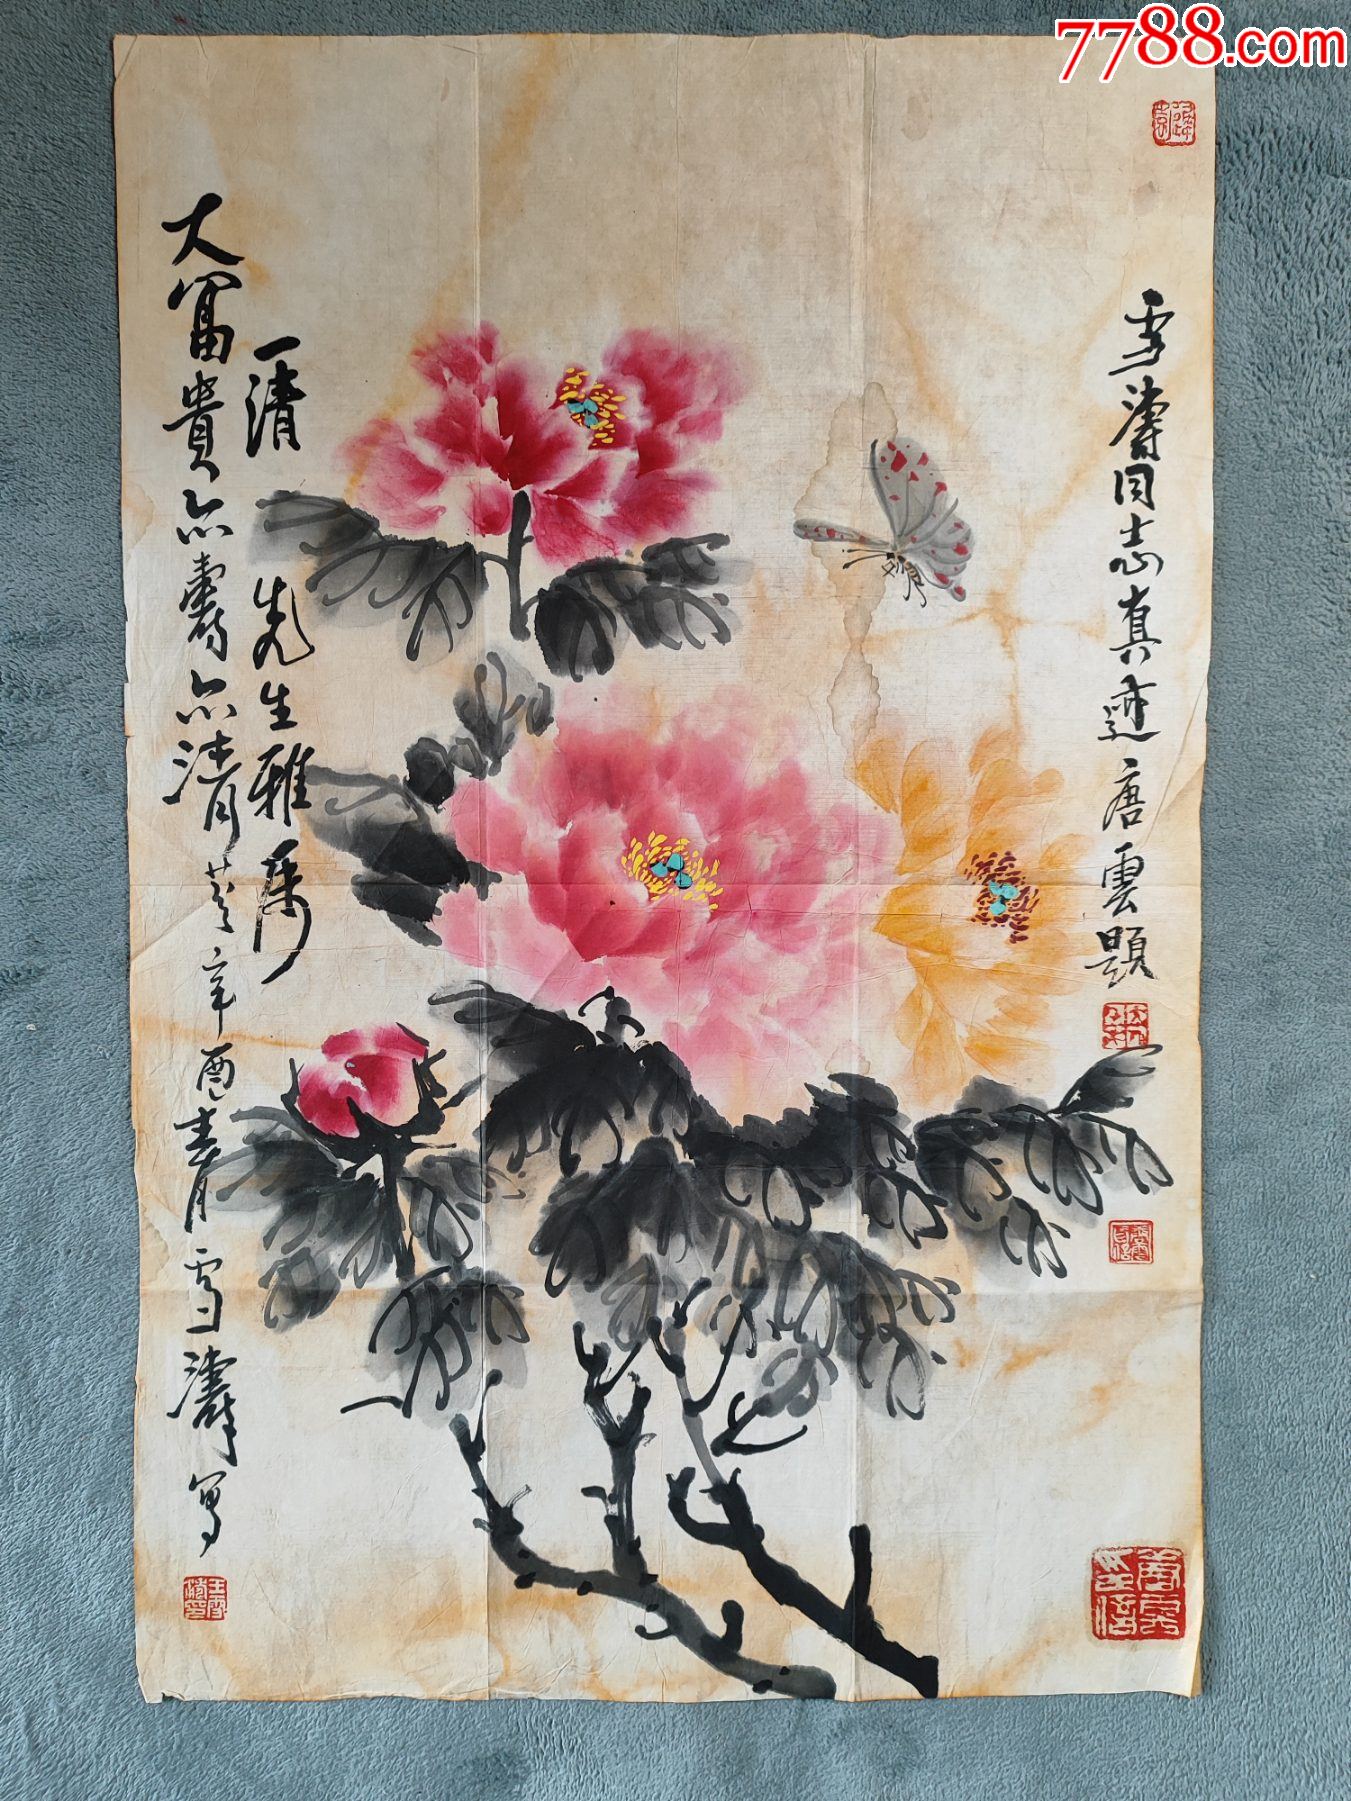 7788.com
雪濤同志真迹唐雲題
大富貴亦壽亦清芬辛酉春月雪濤写
一清先生雅属